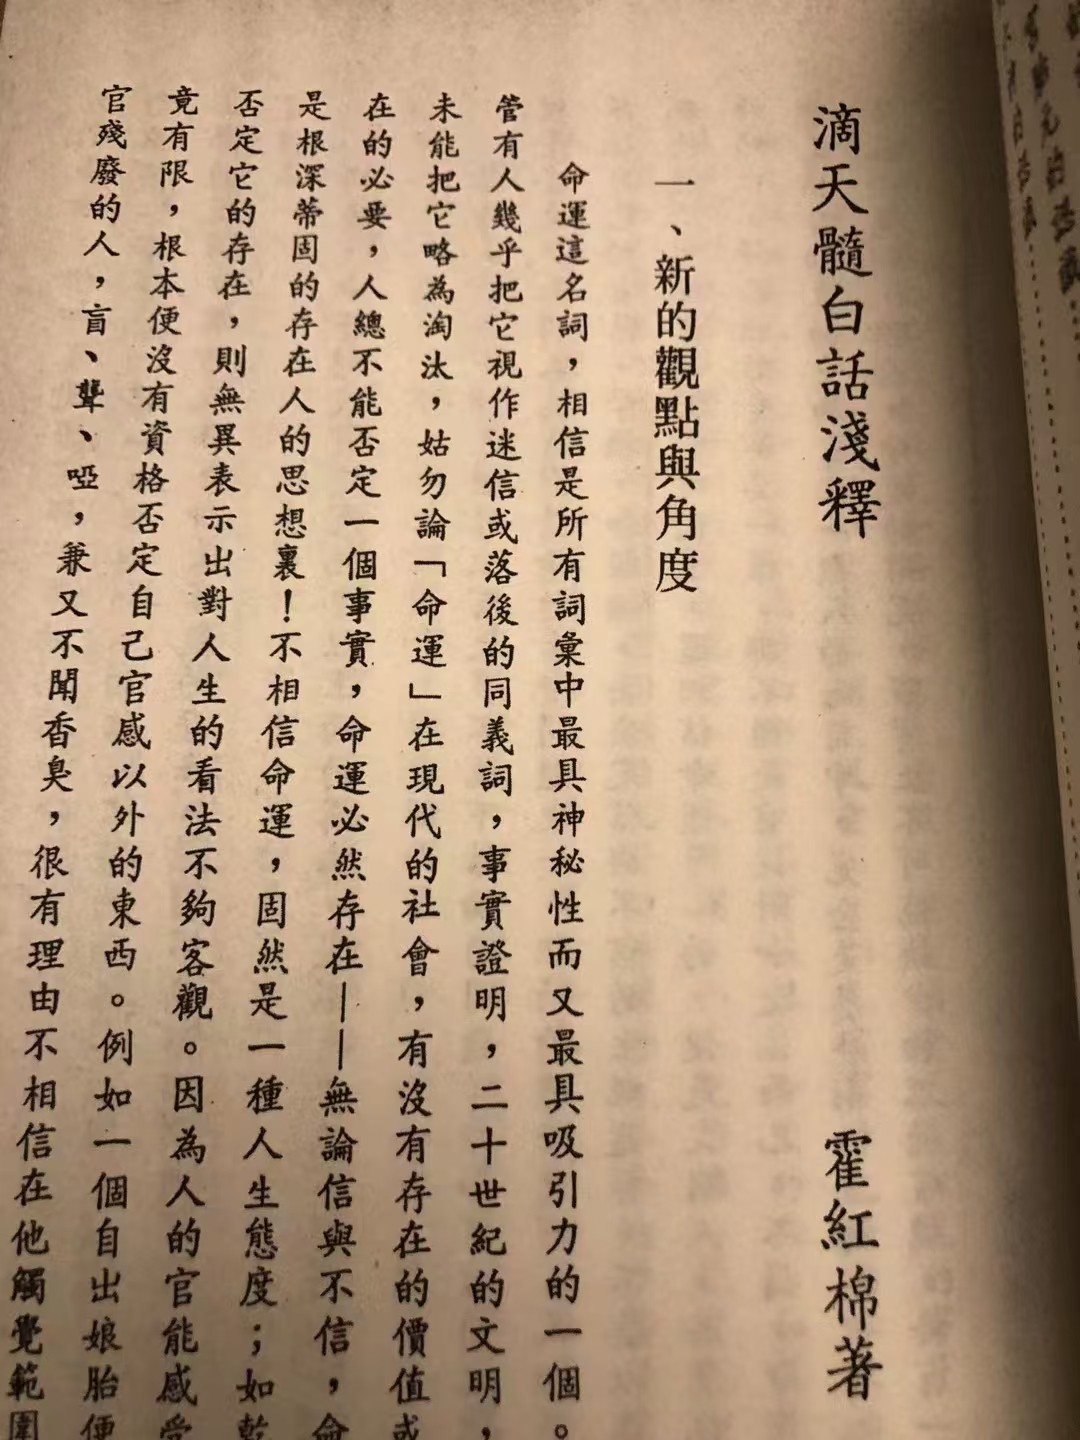 滴天髓白話淺釋 霍紅棉著
一、新的觀點與角度
命運這名詞，相信是所有詞彙中最具神秘性而又最具吸引力的一個。
管有人幾乎把它視作迷信或落後的同義詞，事實證明，二十世紀的文明，
未能把它略為淘汰，姑勿論「命運」在現代的社會，有沒有存在的價值或
在的必要，人總不能否定一個事實，命運必然存在——無論信與不信，命
是根深蒂固的存在人的思想裏！不相信命運，固然是一種人生態度；如乾
否定它的存在，則無異表示出對人生的看法不夠客觀。因為人的官能感受
竟有限，根本便沒有資格否定自己官感以外的東西。例如一個自出娘胎便
官殘廢的人，盲、聾、啞，兼又不聞香臭，很有理由不相信在他觸覺範圍